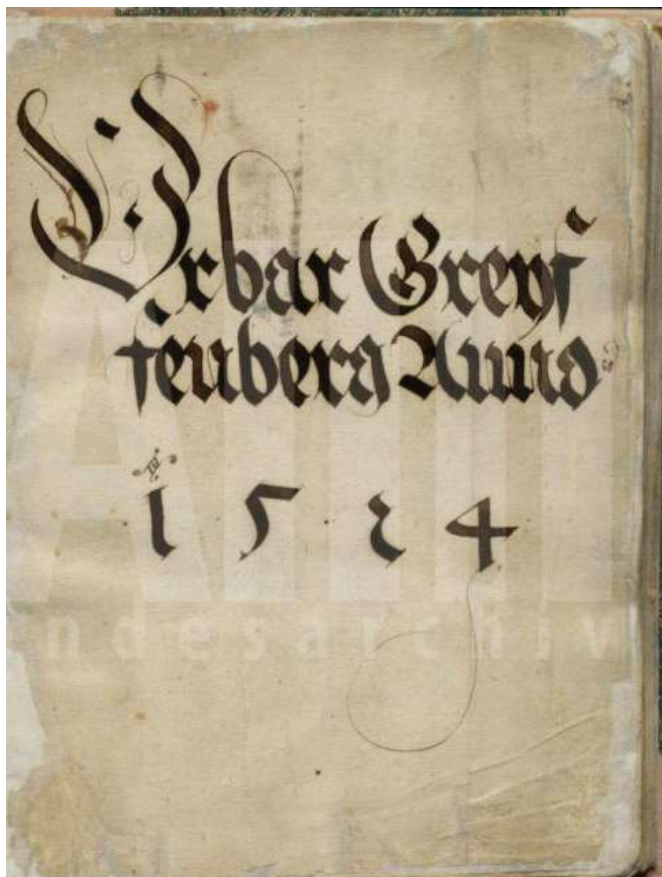 Urbar Greyf
fenberg Anno
1524
ndesarchiv